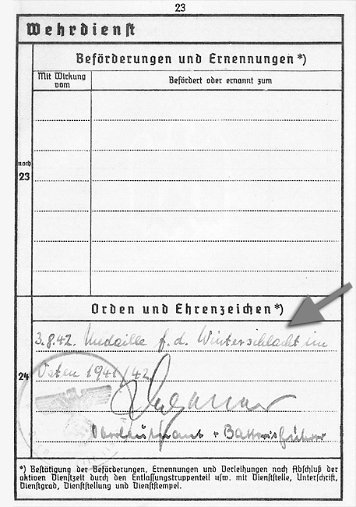 23
Wehrdienst
Beförderungen und Ernennungen*)
Mit Wirkung vom
Befördert oder ernannt zum
noch
23
Orden und Ehrenzeichen*)
3.8.42. Medaille f. d. Winterschlacht im
24
Osten 1941/42
Oberleutnant u. Batterieführer
*) Bestätigung der Beförderungen, Ernennungen und Verleihungen nach Abschluß der
aktiven Dienstzeit durch den Entlassungstruppenteil usw. mit Dienststelle, Unterschrift,
Dienstgrad, Dienststellung und Dienststempel.